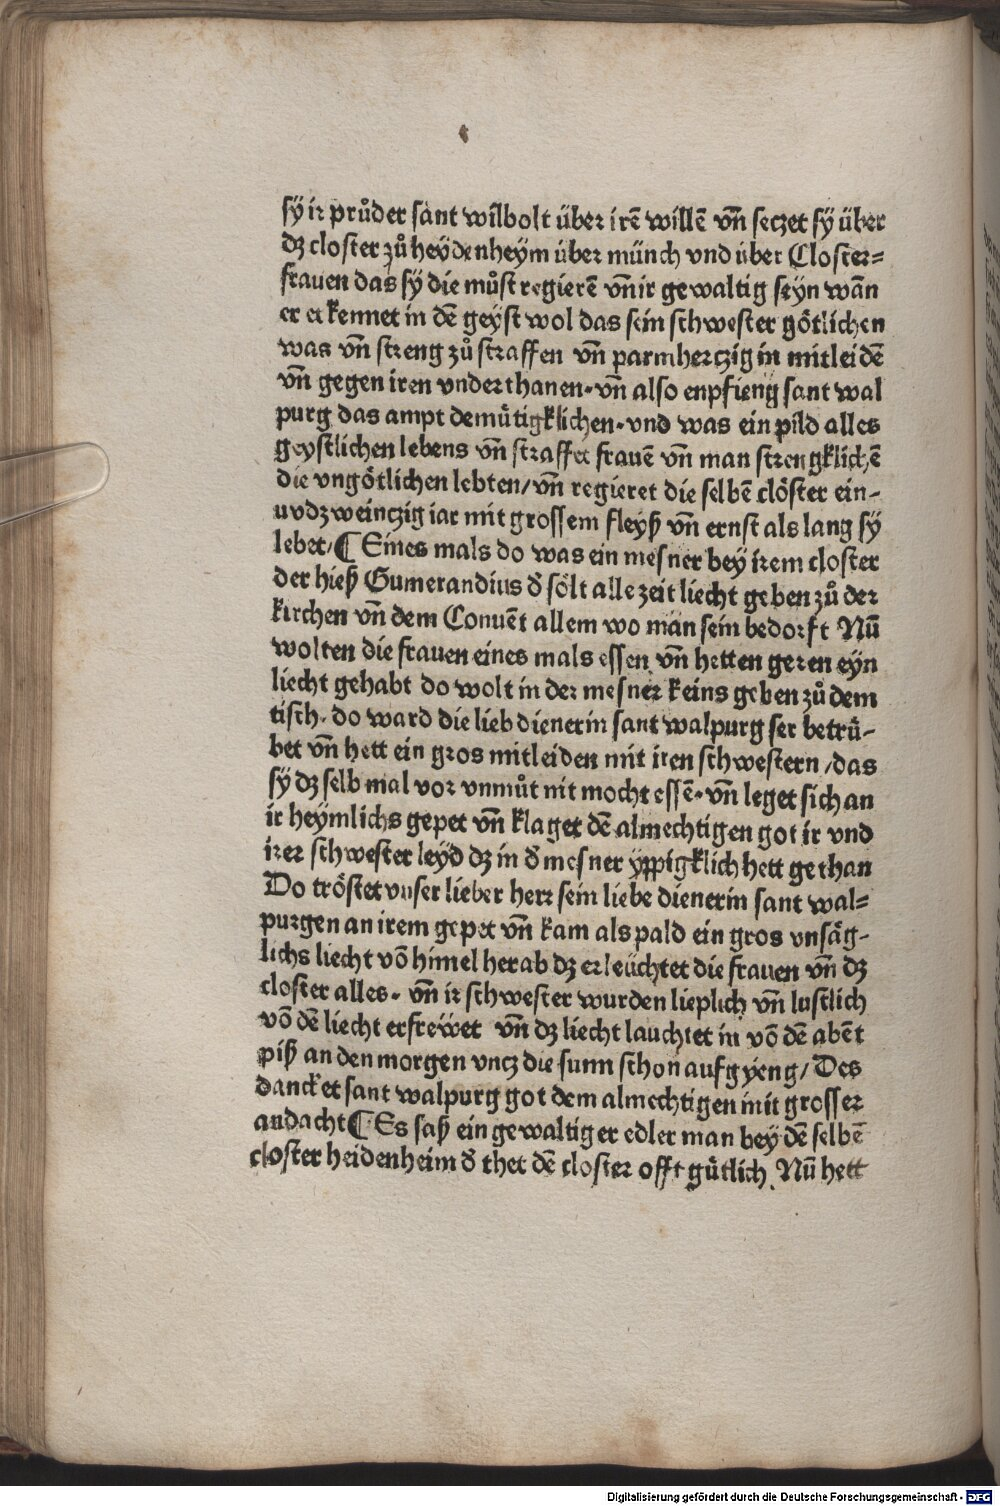 sÿ ir průder sant wilbolt über irē willē vn̄ seczet sÿ über
dz closter zů heÿdenheÿm über münch vnd über Closter=
frauen das sÿ die můst regierē vn̄ ir gewaltig seyn wān
er erkennet in dē geÿst wol das sein schwester götlichen
was vn̄ streng zů straffen vn̄ parmherczig in mitleidē
vn̄ gegen iren vnderthanen· vn̄ also enpfieng sant wal
purg das ampt demütigklichen· vnd was ein pild alles
geystlichen lebens vn̄ straffet frauē vn̄ man strengklichē
die vngötlichen lebten/ vn̄ regieret die selbē clöster ein-
uvdzweinczig iar mit grossem fleyß vn̄ ernst als lang sÿ
lebet/ ¶ Eines mals do was ein mesner bey irem closter
der hieß Gumerandius d̄ sölt alle zeit liecht geben zů der
kirchen vn̄ dem Conuēt allem wo man sein bedorft Nū
wolten die frauen eines mals essen vn̄ hetten geren eyn
liecht gehabt do wolt in der mesner keins geben zů dem
tisch· do ward die lieb dienerin sant walpurg ser betrü-
bet vn̄ hett ein gros mitleiden mit iren schwestern /das
sÿ dz selb mal vor vnmůt nit mocht essē· vn̄ leget sich an
ir heÿmlichs gepet vn̄ klaget dē almechtigen got ir vnd
irer schwester leÿd dz in d̄ mesner ÿppigklich hett gethan
Do tröstet vnser lieber herr sein liebe dienerin sant wal=
purgen an irem gepet vn̄ kam als pald ein gros vnsäg-
lichs liecht vō himel herab dz erleüchtet die frauen vn̄ dz
closter alles· vn̄ ir schwester wurden lieplich vn̄ lustlich
vō dē liecht erfrewet vn̄ dz liecht lauchtet in vō dē abēt
piß an den morgen vncz die sunn schon aufgyeng/ Des
dancket sant walpurg got dem almechtigen mit grosser
andacht ¶ Es saß ein gewaltiger edler man bey dē selbē
closter heidenheim d̄ thet dē closter offt gütlich. Nū hett
Digitalisierung gefördert durch die Deutsche Forschungsgemeinschaft - DFG